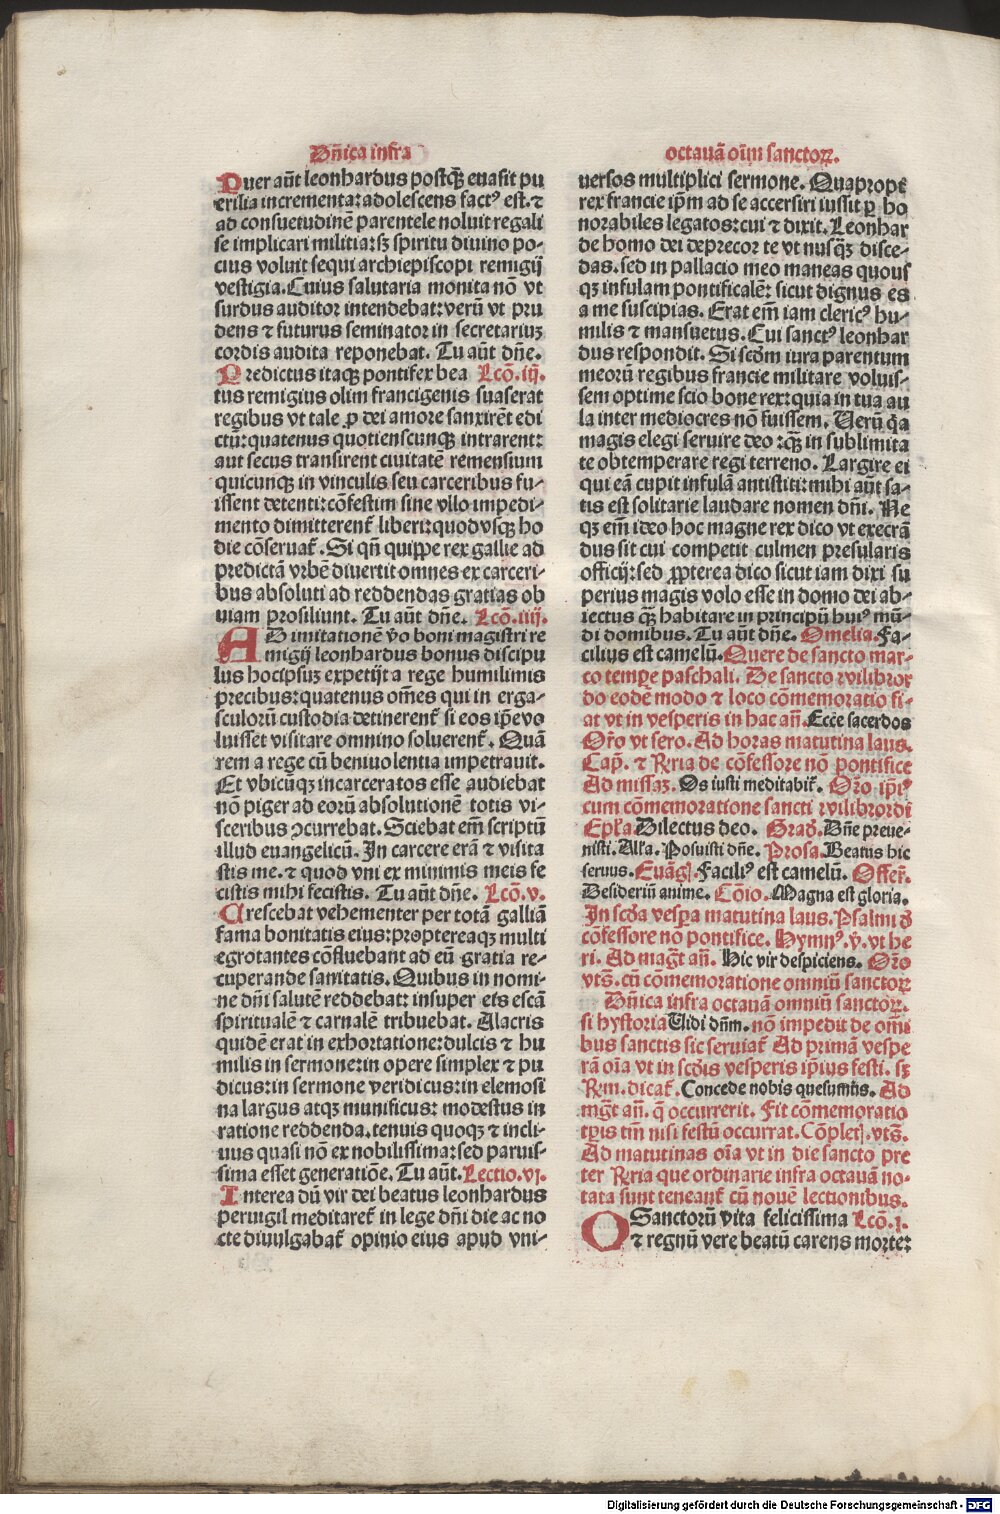 Dñica infra
Puer aūt leonhardus postq̃ꝫ euasit pu
erilia incrementa: adolescens factꝰ est. ⁊
ad consuetudinē parentele noluit regali
se implicari militia: sꝫ spiritu diuino po-
cius voluit sequi archiepiscopi remigij
vestigia. Cuius salutaria monita nō vt
surdus auditor intendebat: verū vt pru
dens ⁊ futurus seminator in secretariuꝫ
cordis audita reponebat. Tu aūt dñe.
Predictus itaqꝫ pontifex bea Lcō. iij.
tus remigius olim francigenis suaserat
regibus vt tale ꝓ dei amore sanxirēt edi
ctū: quatenus quotienscunqꝫ intrarent:
aut secus transirent ciuitatē remensium
quicunqꝫ in vinculis seu carceribus fu-
issent detenti: cōfestim sine vllo impedi-
mento dimitterent᷑ liberi: quod vsqꝫ ho
die cōseruat᷑. Si qñ quippe rex gallie ad
predictā vrbē diuertit omnes ex carceri-
bus absoluti ad reddendas gratias ob
uiam prosiliunt. Tu aūt dñe. Lcō. iiij.
AD imitationē v̊o boni magistri re
migij leonhardus bonus discipu
lus hocipsuꝫ expetijt a rege humilimis
precibus: quatenus om̄es qui in erga-
sculorū custodia detinerent᷑ si eos ip̄e vo
luisset visitare omnino soluerent᷑. Quā
rem a rege cū beniuolentia impetrauit.
Et vbicūqꝫ incarceratos esse audiebat
nō piger ad eorū absolutionē totis vi-
sceribus ↄcurrebat. Sciebat em̄ scriptū
illud euangelicū. In carcere erā ⁊ visita
stis me. ⁊ quod vni ex minimis meis fe
cistis mihi fecistis. Tu aūt dñe. Lcō. v.
Crescebat vehementer per totā galliā
fama bonitatis eius: proptereaqꝫ multi
egrotantes cōfluebant ad eū gratia re-
cuperande sanitatis. Quibus in nomi-
ne dñi salutē reddebat: insuper ⁊ts escā
spiritualē ⁊ carnalē tribuebat. Alacris
quidē erat in exhortatione: dulcis ⁊ hu
milis in sermone: in opere simplex ⁊ pu
dicus: in sermone veridicus: in elemosi
na largus atqꝫ munificus: modestus in
ratione reddenda. tenuis quoqꝫ ⁊ incli-
uus quasi nō ex nobilissima: sed paruis-
sima esset generatiōe. Tu aūt. Lectio. vj.
Interea dū vir dei beatus leonhardus
peruigil meditaret᷑ in lege dñi die ac no
cte diuulgabat᷑ opinio eius apud vni-
octauā oīm sanctoꝝ.
uersos multiplici sermone. Quapropť
rex francie ip̄m ad se accersiri iussit ꝑ ho
norabiles legatos: cui ⁊ dixit. Leonhar
de homo dei deprecor te vt nusq̃ꝫ disce-
das. sed in pallacio meo maneas quous
qꝫ infulam pontificalē: sicut dignus es
a me suscipias. Erat em̄ iam clericꝰ hu-
milis ⁊ mansuetus. Cui sanctꝰ leonhar
dus respondit. Si scd̄m iura parentum
meorū regibus francie militare voluis-
sem optime scio bone rex: quia in tua au
la inter mediocres nō fuissem. Uerū q̃a
magis elegi seruire deo : q̃ꝫ in sublimita
te obtemperare regi terreno. Largire ei
qui eā cupit infulā antistiti: mihi aūt sa-
tis est solitarie laudare nomen dñi. Ne
qꝫ em̄ ideo hoc magne rex dico vt execrā
dus sit cui competit culmen presularis
officij: sed ꝓpterea dico sicut iam dixi su
perius magis volo esse in domo dei ab-
iectus q̃ꝫ habitare in principū huiꝰ mū-
di domibus. Tu aūt dñe. Omelia. Fa-
cilius est camelū. Quere de sancto mar-
co tempe paschali. De sancto wilibror
do eodē modo ⁊ loco cōmemoratio fi-
at vt in vesperis in hac añ. Ecce sacerdos
Or̃o vt sero. Ad horas matutina laus.
Cap̄. ⁊ R̃ria de cōfessore nō pontifice
Ad missaꝫ. Os iusti meditabit᷑. Or̃o ip̄iꝰ
cum cōmemoratione sancti wilibrordi
Ep̄la Dilectus deo. Grad̄. Dñe preue-
nisti. Alľa. Posuisti dñe. Prosa. Beatus hic
seruus. Euāg̃j. Faciliꝰ est camelū. Offer̃.
Desideriū anime. Cōio. Magna est gloria.
In scd̄a vesꝑa matutina laus. Psalmi d̄
cōfessore nō pontifice. Hymnꝰ. v̄. vt he
ri. Ad magt̄ añ. Hic vir despiciens. Or̃o
vts̄. cū cōmemoratione omniū sanctoꝝ
Dñica infra octauā omniū sanctoꝝ.
si hystoria Uidi dñm. nō impedit de om̄i
bus sanctis sic seruiat᷑ Ad primā vespe
rā oīa vt in scd̄is vesperis ip̄ius festi. sꝫ
R̃m. dicat᷑. Concede nobis quesumūs. Ad
mg̃t añ. q̄ occurrerit. Fit cōmemoratio
tp̄is tm̄ nisi festū occurrat. Cōpletj. vts̄.
Ad matutinas oīa vt in die sancto pre
ter R̃ria que ordinarie infra octauā no-
tata sunt teneant᷑ cū nouē lectionibus.
O Sanctorū vita felicissima Lcō. j.
⁊ regnū vere beatū carens morte:
Digitalisierung gefördert durch die Deutsche Forschungsgemeinschaft - DFG